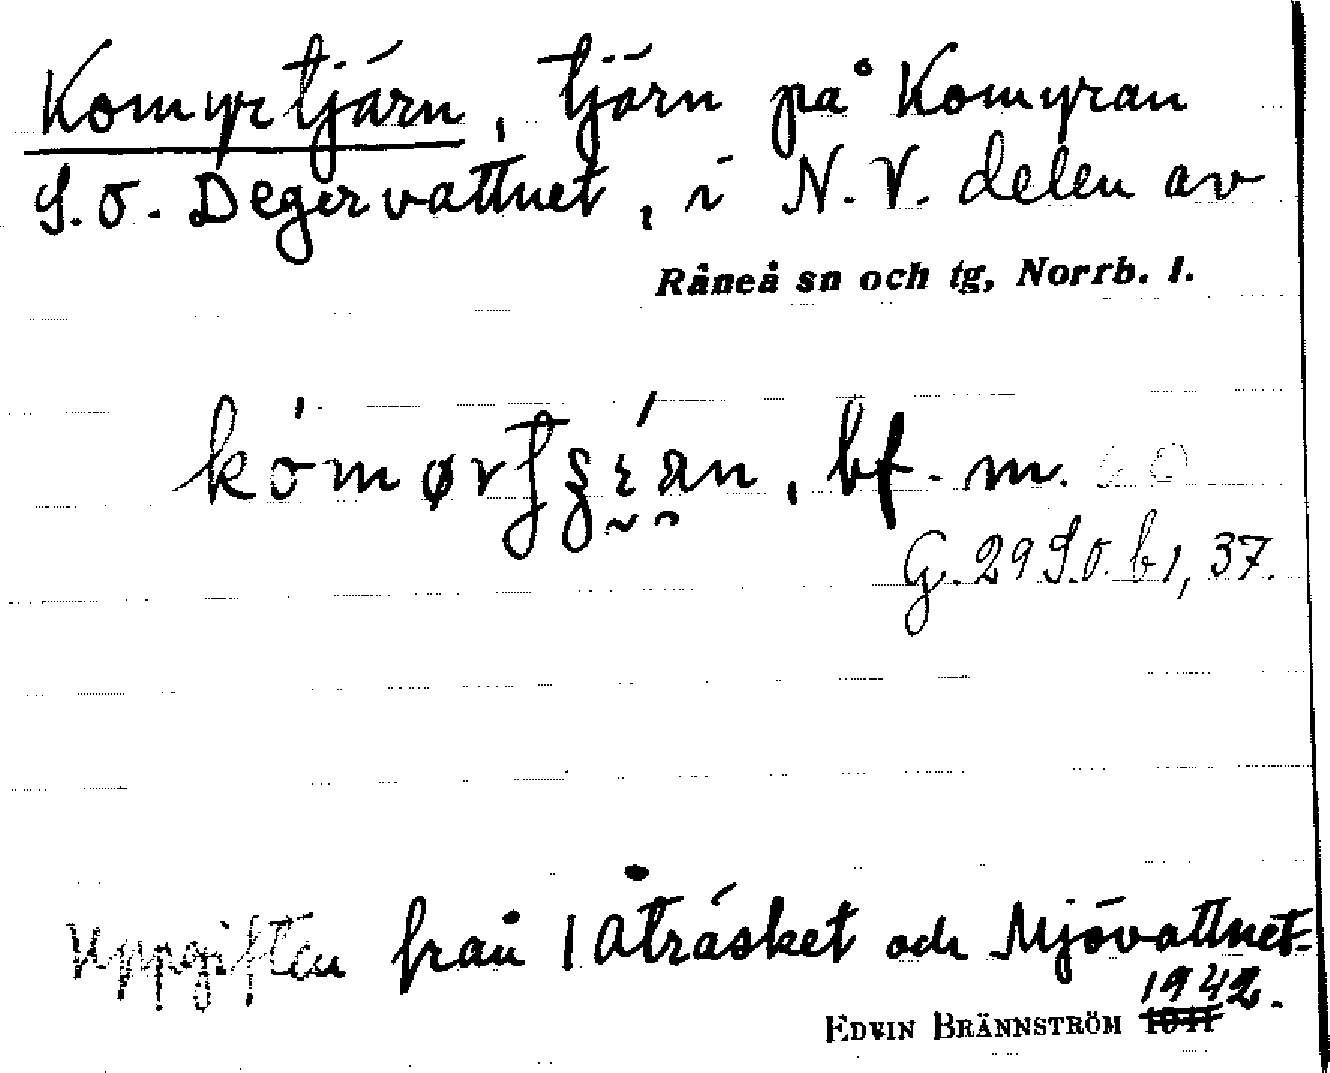 Komyrtjärn, tjärn på Komyran
S.O. Degervattnet, i N.V. delen av
Råneå sn och tg, Norrb. l.
bf. m.
G. 29 S.O. b 1, 37.
Uppgiften från Åträsket och Mjövattnet
1942.
EDVIN BRÄNNSTRÖM 1941